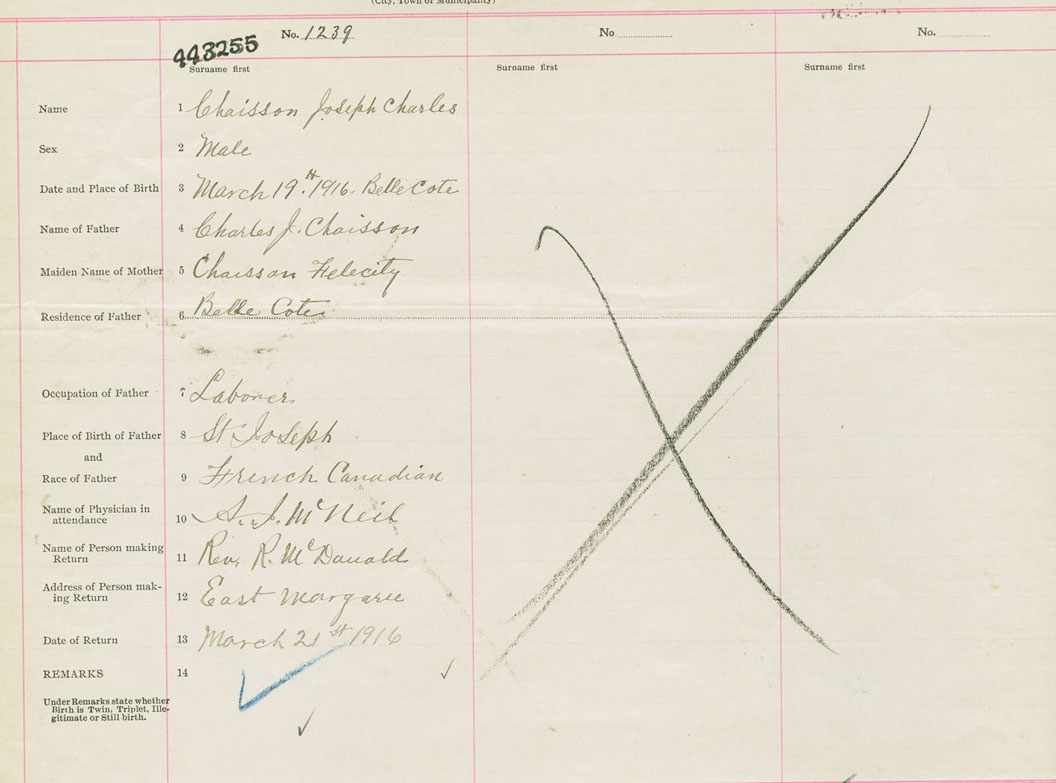 (City, Town or Municipality)
No. 1239
No.
No.
443255
Surname first
Surname first
Surname first
Name 1 Chaisson Joseph Charles
Sex 2 Male
Date and Place of Birth 3 March 19th 1916. Belle Cote
Name of Father 4 Charles J. Chaisson
Maiden Name of Mother 5 Chaisson Felecity
Residence of Father 6 Belle Cote
Occupation of Father 7 Laborer.
Place of Birth of Father 8 St Joseph
and
Race of Father 9 French Canadian
Name of Physician in
attendance 10 A. J. McNeil
Name of Person making
Return 11 Rev. R. McDonald
Address of Person mak-
ing Return 12 East Margaree
Date of Return 13 March 21st 1916
REMARKS 14
Under Remarks state whether
Birth is Twin, Triplet, Ille-
gitimate or Still birth.